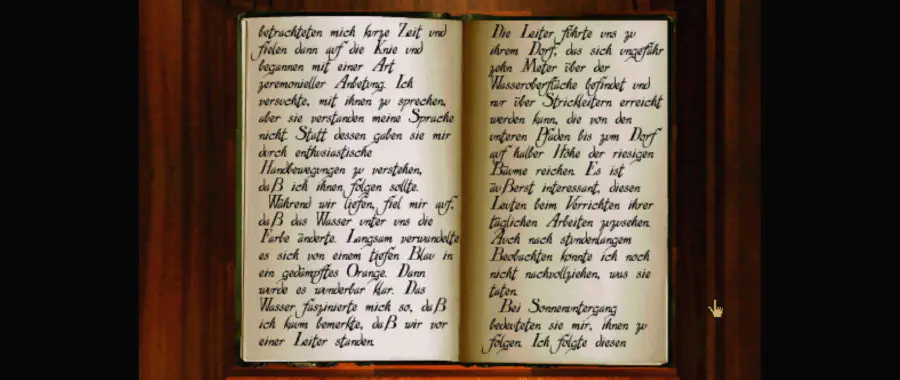 betrachteten mich kurze Zeit und
fielen dann auf die Knie und
begannen mit einer Art
zeremonieller Anbetung. Ich
versuchte, mit ihnen zu sprechen,
aber sie verstanden meine Sprache
nicht. Statt dessen gaben sie mir
durch enthusiastische
Handbewegungen zu verstehen,
daß ich ihnen folgen sollte.
Während wir liefen, fiel mir auf,
daß das Wasser unter uns die
Farbe änderte. Langsam verwandelte
es sich von einem tiefen Blau in
ein gedämpftes Orange. Dann
wurde es wunderbar klar. Das
Wasser faszinierte mich so, daß
ich kaum bemerkte, daß wir vor
einer Leiter standen.
Die Leiter führte uns zu
ihrem Dorf, das sich ungefähr
zehn Meter über der
Wasseroberfläche befindet und
nur über Strickleitern erreicht
werden kann, die von den
unteren Pfaden bis zum Dorf
auf halber Höhe der riesigen
Bäume reichen. Es ist
äußerst interessant, diesen
Leuten beim Verrichten ihrer
täglichen Arbeiten zuzusehen.
Auch nach stundenlangem
Beobachten konnte ich noch
nicht nachvollziehen, was sie
taten.
Bei Sonnenuntergang
bedeuteten sie mir, ihnen zu
folgen. Ich folgte diesen